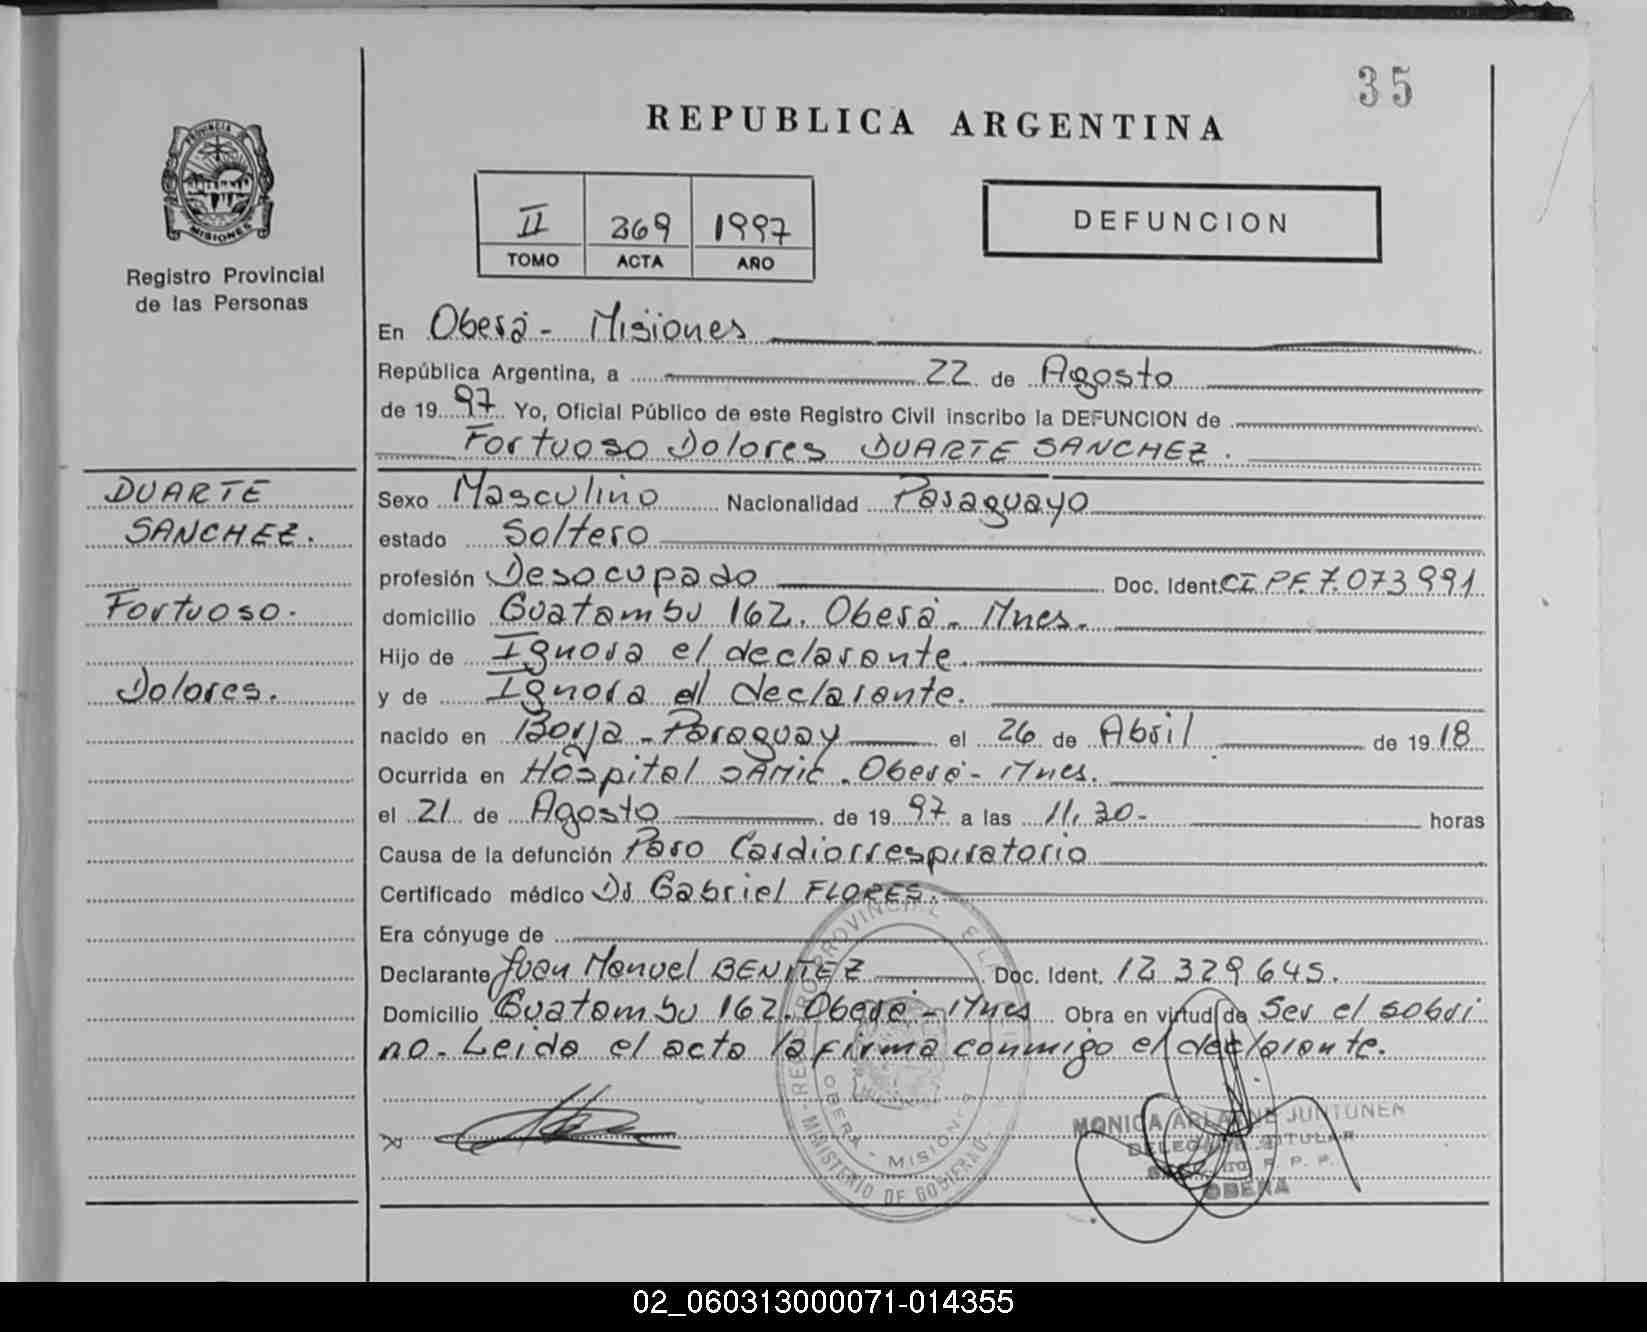 35
REPUBLICA ARGENTINA
PROVINCIA DE
MISIONES
Registro Provincial
de las Personas
II 369 1997
TOMO ACTA AÑO
DEFUNCION
En Oberá - Misiones
República Argentina, a 22 de Agosto
de 1997 Yo, Oficial Público de este Registro Civil inscribo la DEFUNCION de
Fortuoso Dolores DUARTE SANCHEZ.
DUARTE
SANCHEZ.
Fortuoso.
Dolores.
Sexo Masculino Nacionalidad Paraguayo
estado Soltero
profesión Desocupado Doc. Ident. CI.PF.7.073991
domicilio Guatambu 162. Oberá - Mnes.
Hijo de Ignora el declarante.
y de Ignora el declarante.
nacido en Borja - Paraguay el 26 de Abril de 1918
Ocurrida en Hospital SAMIC. Oberá - Mnes.
el 21 de Agosto de 1997 a las 11,30- horas
Causa de la defunción Paro Cardiorrespiratorio
Certificado médico Dr Gabriel FLORES.
Era cónyuge de
Declarante Juan Manuel BENITEZ Doc. Ident. 12.329.645.
Domicilio Guatambu 162. Oberá - Mnes Obra en virtud de Ser el sobri
no. Leida el acta la firma conmigo el declarante.
MINISTERIO DE GOBIERNO
OBERA - MISIONES
MONICA ARLAENE JUNTUNEN
TITULAR
R. P. P.
OBERA
02_060313000071-014355